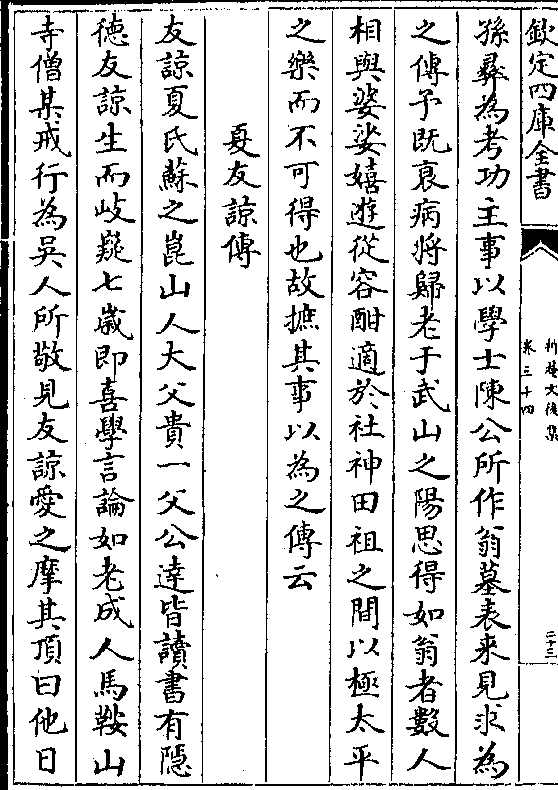 欽定四庫全書
抑菴文後集
卷三十四
二十三
孫彞為考功主事以學士陳公所作翁墓表来見求為
之傳予既衰病将歸老于武山之陽思得如翁者數人
相與婆娑嬉遊從容酣適於社神田祖之間以極太平
之樂而不可得也故摭其事以為之傳云
夏友諒傳
友諒夏氏蘇之崑山人大父貴一父公逹皆讀書有隠
徳友諒生而岐嶷七歲即喜學言論如老成人馬鞍山
寺僧某戒行為吳人所敬見友諒愛之摩其頂曰他日